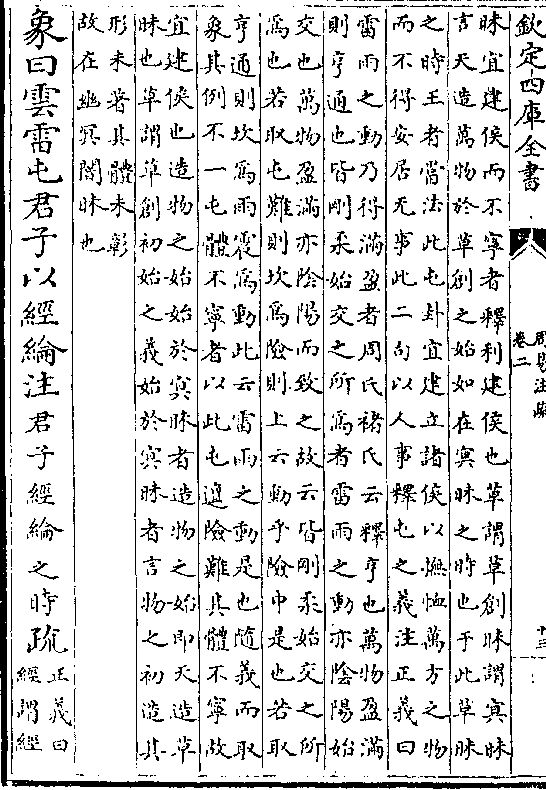 欽定四庫全書
周易注疏
卷二
十三
昧宜建侯而不寧者釋利建侯也草謂草創昧謂冥昧
言天造萬物於草創之始如在冥昧之時也于此草昧
之時王者當法此屯卦宜建立諸侯以撫恤萬方之物
而不得安居无事此二句以人事釋屯之義注正義曰
雷雨之動乃得滿盈者周氏褚氏云釋亨也萬物盈滿
則亨通也皆剛柔始交之所為者雷雨之動亦陰陽始
交也萬物盈滿亦陰陽而致之故云皆剛柔始交之所
為也若取屯難則坎為險則上云動乎險中是也若取
亨通則坎為雨震為動此云雷雨之動是也隨義而取
象其例不一屯體不寧者以此屯邅險難其體不寧故
宜建侯也造物之始始於冥昧者造物之始即天造草
昧也草謂草創初始之義始於冥昧者言物之初造其
形未著其體未彰
故在幽冥闇昧也
象曰雲雷屯君子以經綸注君子經綸之時疏
正義曰
經謂經